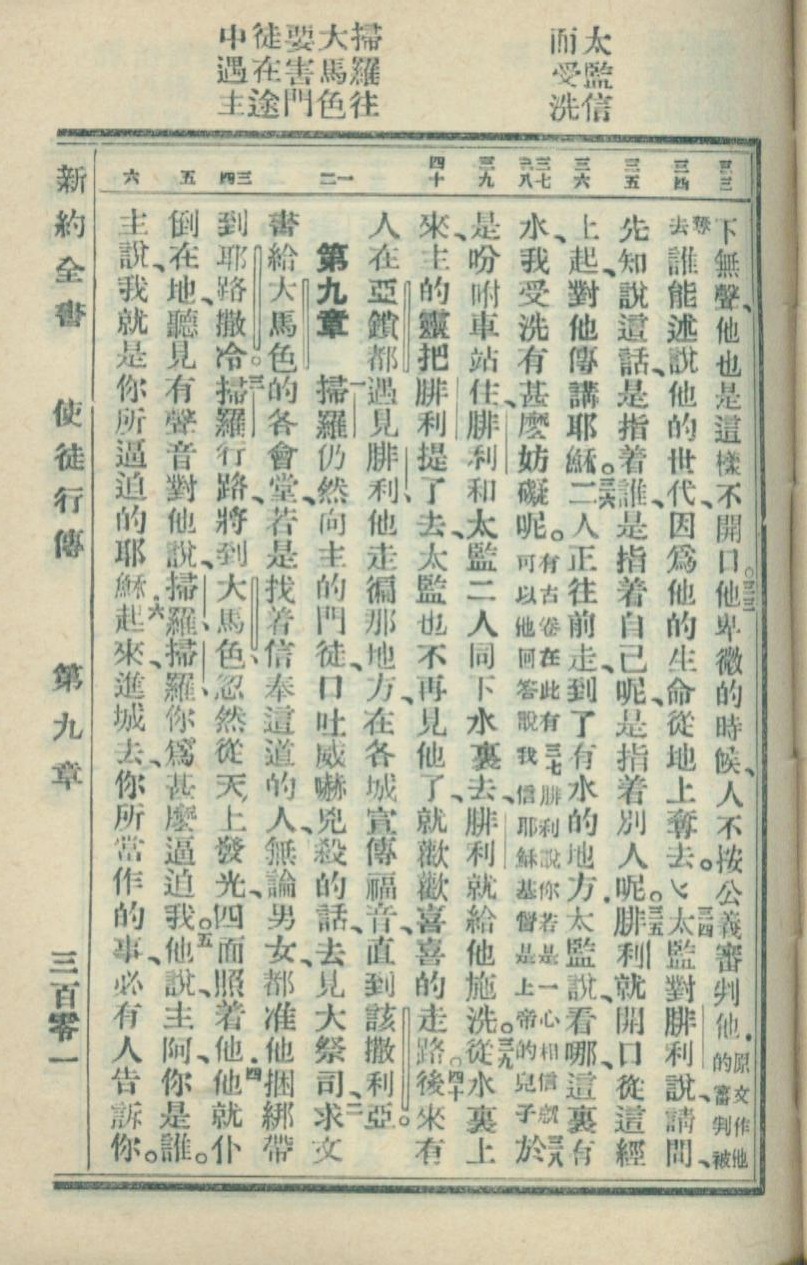 太監信
而受洗
掃羅往
大馬色
要害門
徒在途
中遇主
三三
三四
三五
三六
三七 三八
三九
四十
一 二
三 四
五
六
下無聲、他也是這樣不開口。三三他卑微的時候、人不按公義審判他．原文作他的審判被
奪去誰能述說他的世代、因爲他的生命從地上奪去。三四太監對腓利說、請問、
先知說這話、是指着誰、是指着自己呢、是指着別人呢。三五腓利就開口從這經
上起、對他傳講耶穌。三六二人正往前走、到了有水的地方．太監說、看哪、這裏有
水、我受洗有甚麼妨礙呢。有古卷在此有三七腓利說你若是一心相信就可以他回答說我信耶穌基督是上帝的兒子三八於
是吩咐車站住、腓利和太監二人同下水裏去、腓利就給他施洗。三九從水裏上
來、主的靈把腓利提了去、太監也不再見他了、就歡歡喜喜的走路。四十後來有
人在亞鎖都、遇見腓利、他走徧那地方、在各城宣傳福音、直到該撒利亞。
第九章 一掃羅仍然向主的門徒、口吐威嚇兇殺的話、去見大祭司、二求文
書給大馬色的各會堂、若是找着信奉這道的人、無論男女、都准他捆綁帶
到耶路撒冷。三掃羅行路、將到大馬色、忽然從天上發光、四面照着他．四他就仆
倒在地、聽見有聲音對他說、掃羅、掃羅、你爲甚麼逼迫我。五他說、主阿、你是誰。
主說、我就是你所逼迫的耶穌．六起來、進城去、你所當作的事、必有人告訴你。
新約全書 使徒行傳 第九章 三百零一